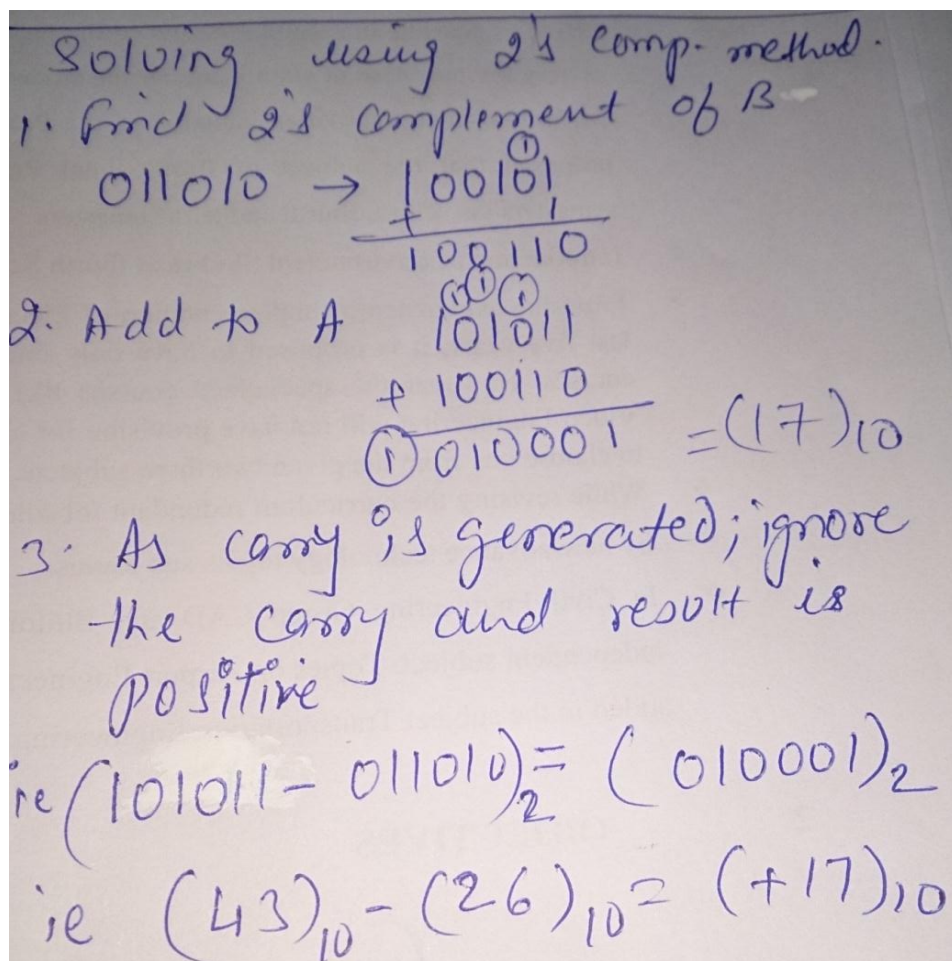 Solving using 2's comp. method.
1. find 2's complement of B
①
011010 → 100101
+ 1
100110
① ① ①
2. Add to A 101011
+ 100110
① 010001 = (17)10
3. As carry is generated; ignore
the carry and result is
positive
ie (101011 - 011010)2 = (010001)2
ie (43)10 - (26)10 = (+17)10